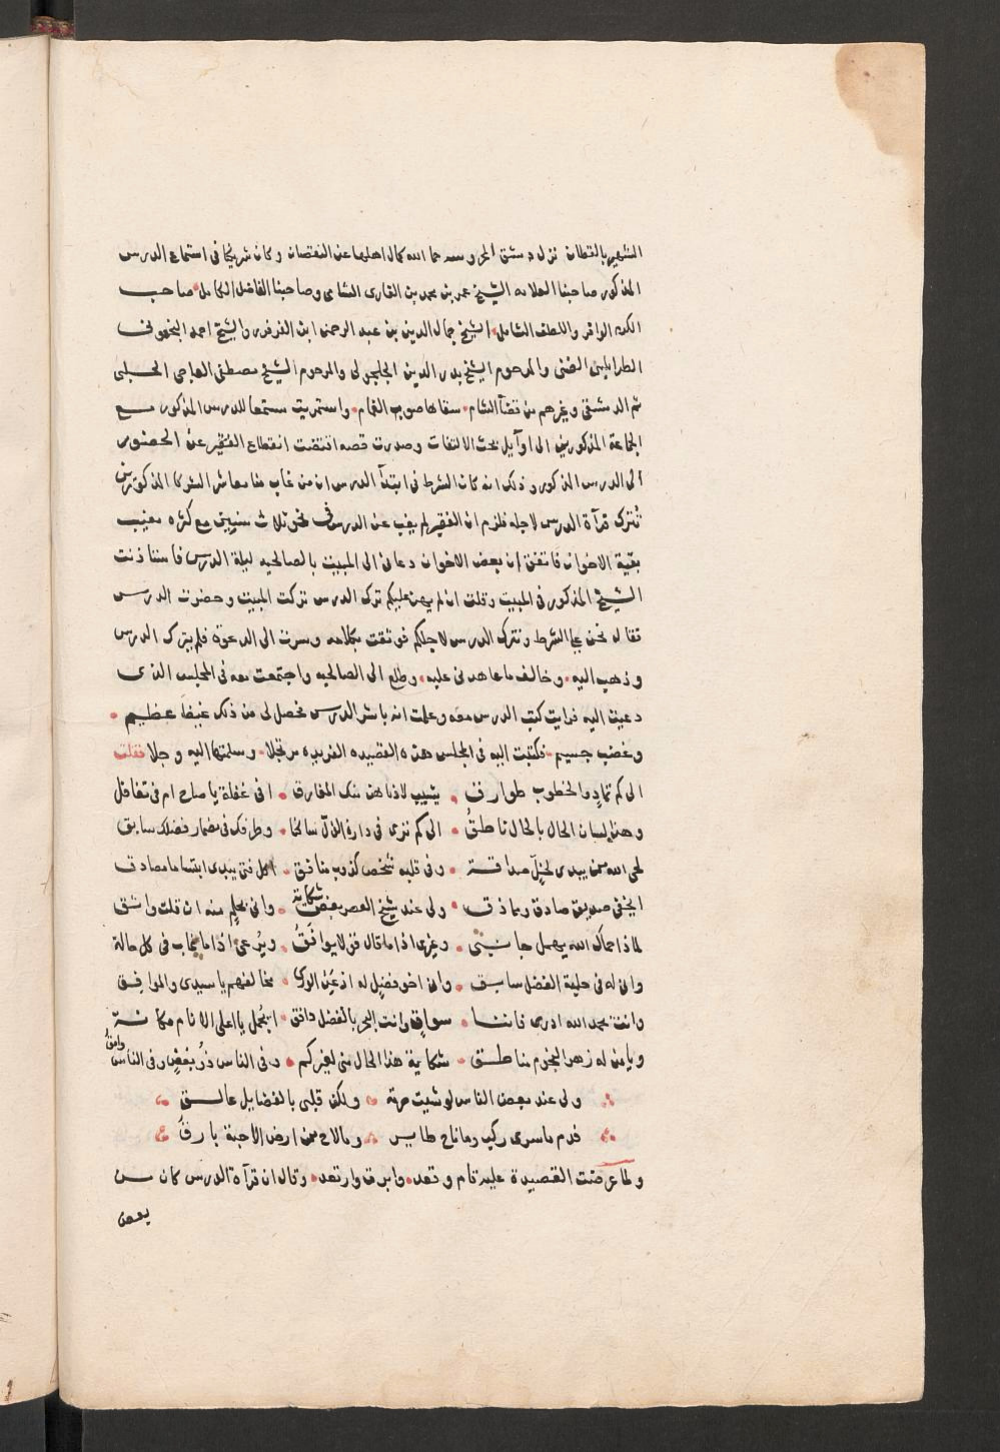 الشهير بالقطان نزل دمشق المحروسه حما الله كمال اهلها عن النقصان وكان شريكا فى استماع الدرس
المذكور صاحبنا العلامه الشيخ عمر بن محمد بن القارى الشامى وصاحبنا الفاضل الكامل صاحب
الكرم الوافر واللطف الشامل الشيخ جمال الدين بن عبد الرحمن ابن الفرفور والشيخ احمد
الطرابلسى الحنفى والمرحوم الشيخ بدر الدين والمرحوم الشيخ مصطفى الحلبى
ثم الدمشقى وغيرهم من فضلآ الشام سقاها صوب الغمام واستمريت مستمعا للدرس المذكور مع
الجماعة المذكورين الى اوآيل بحث الالتفات وصدرت قصه اقتضت انقطاع الفقير عن الحضور
الى الدرس المذكور وذلك انه كان الشرط فى ابتدآ الدرس ان من غاب منا معاشر الشركا المذكورين
نترك قرآة الدرس لاجله فلزم ان الفقير لم يغب عن الدرس فى نحو ثلاث سنين مع كثرة مغيب
بقية الاخوان فاتفق ان بعض الاخوان دعانى الى المبيت بالصالحيه ليلة الدرس فاستاذنت
الشيخ المذكور فى المبيت وقلت ان لم يهن عليكم ترك الدرس تركت المبيت وحضرت الدرس
فقال نحن على الشرط ونترك الدرس لاجلكم فوثقت بكلامه وسرت الى الدعوة فلم يترك الدرس
وذهب اليه وخالف ما عاهدنى عليه وطلع الى الصالحيه واجتمعت معه فى المجلس الذى
دعيت اليه فرايت كتب الدرس معه وعلمت انه باشر الدرس فحصل لى من ذلك غيضا عظيم
وغضب جسيم فكتبت اليه فى المجلس هذه القصيده الفريده مرتجلا وسلمتها اليه وجلا فقلت
الى كم تمادٍ والخطوب طوارق يشيب لادناهن منك المفارق افى غفلة يا صاح ام فى تغافل
وهذا لسان الحال بالحال ناطقُ الى كم ترى فى دارة الذل سالكا وطرفك فى مضمار فضلك سابق
لحى الله من يبدى لخلٍّ صداقة وفى قلبه شخص كذوب منافق اكل فتى يبدى ابتساما مصادق
ايخفى صديق صادق ومماذق ولى عند شيخ العصر بعض شكاية وانى بحلمٍ منه ان قلت واثق
لماذا حماك الله يهمل جانبى ويغرى اذا ما قال من لا يوافقُ ويُرعى اذا ما غاب فى كل حالة
وان له فى حلبة الفضل سابق وان اخو فضلٍ له اذعَن الورى مخالفهم يا سيدى والموافق
وانت بحمد الله ادرى فاننا سواقٍ وانت البحر بالفضل دافق ايجمل يا اعلى الانام مكانة
ويا من له زهر النجوم مناطق شكاية هذا الحال منى لغيركم وفى الناس ذو بغضٍ وفى الناس وامقُ
ولى عند بعض الناس لو شيت حرمة ولكن قلبى بالفضايل عالق
فدم ما سرى ركب وما ناح طاير وما لاح من ارض الاحبة بارقُ
ولما عرضت القصيدة عليه قام وقعد وابرق وارتعد وقال ان قرآة الدرس كان من
بعض